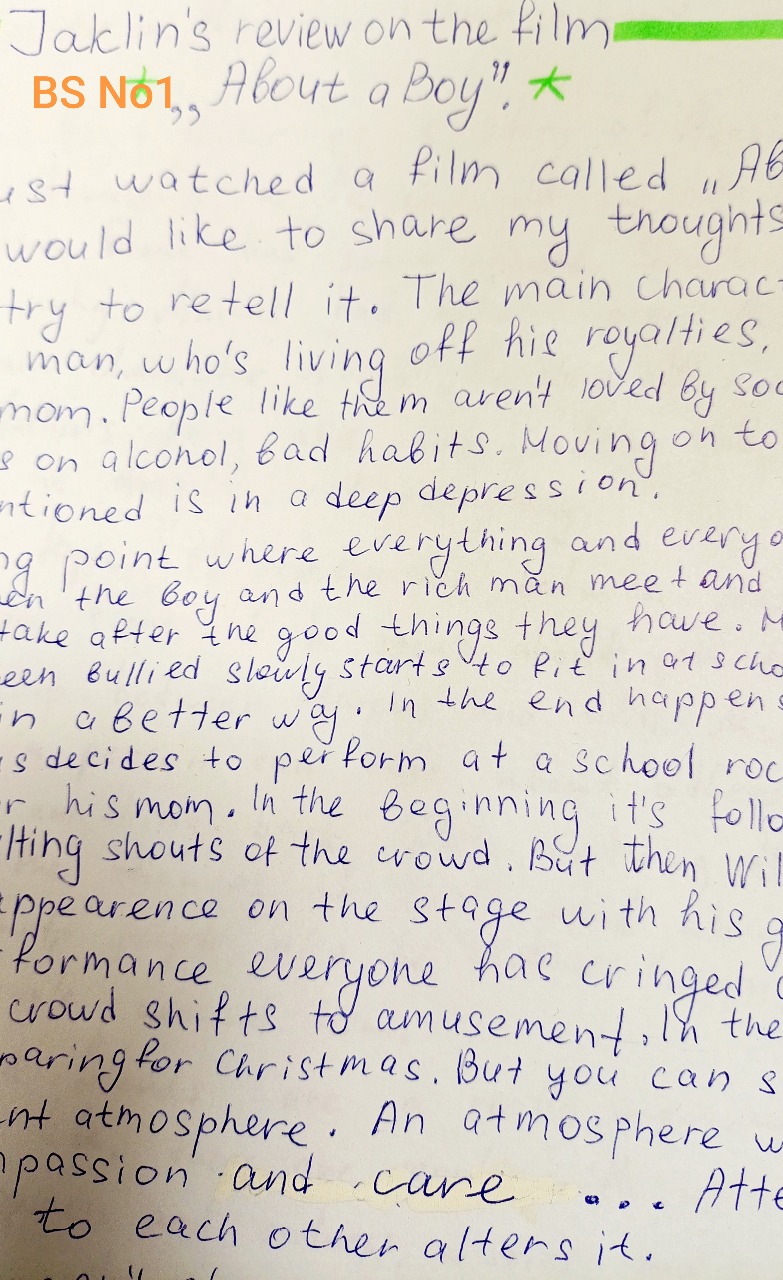 Jaklin's review on the film
BS No1
„About a Boy".
ust watched a film called „Ab
would like to share my thoughts
try to retell it. The main charact
man, who's living off his royalties,
mom. People like them aren't loved by soc
s on alcohol, bad habits. Moving on to
ntioned is in a deep depression.
ng point where everything and everyo
en the boy and the rich man meet and
take after the good things they have. M
een bullied slowly starts to fit in at scho
in a better way. In the end happens
s decides to perform at a school roc
r his mom. In the beginning it's follo
lting shouts of the crowd. But then Wil
appearence on the stage with his g
formance everyone has cringed
crowd shifts to amusement. In the
paring for Christmas. But you can s
nt atmosphere. An atmosphere w
mpassion and care ... Atte
to each other alters it.